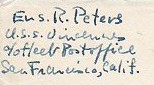 Ens. R. Peters
U.S.S. Vincennes
% Fleet Post office
San Francisco, Calif.